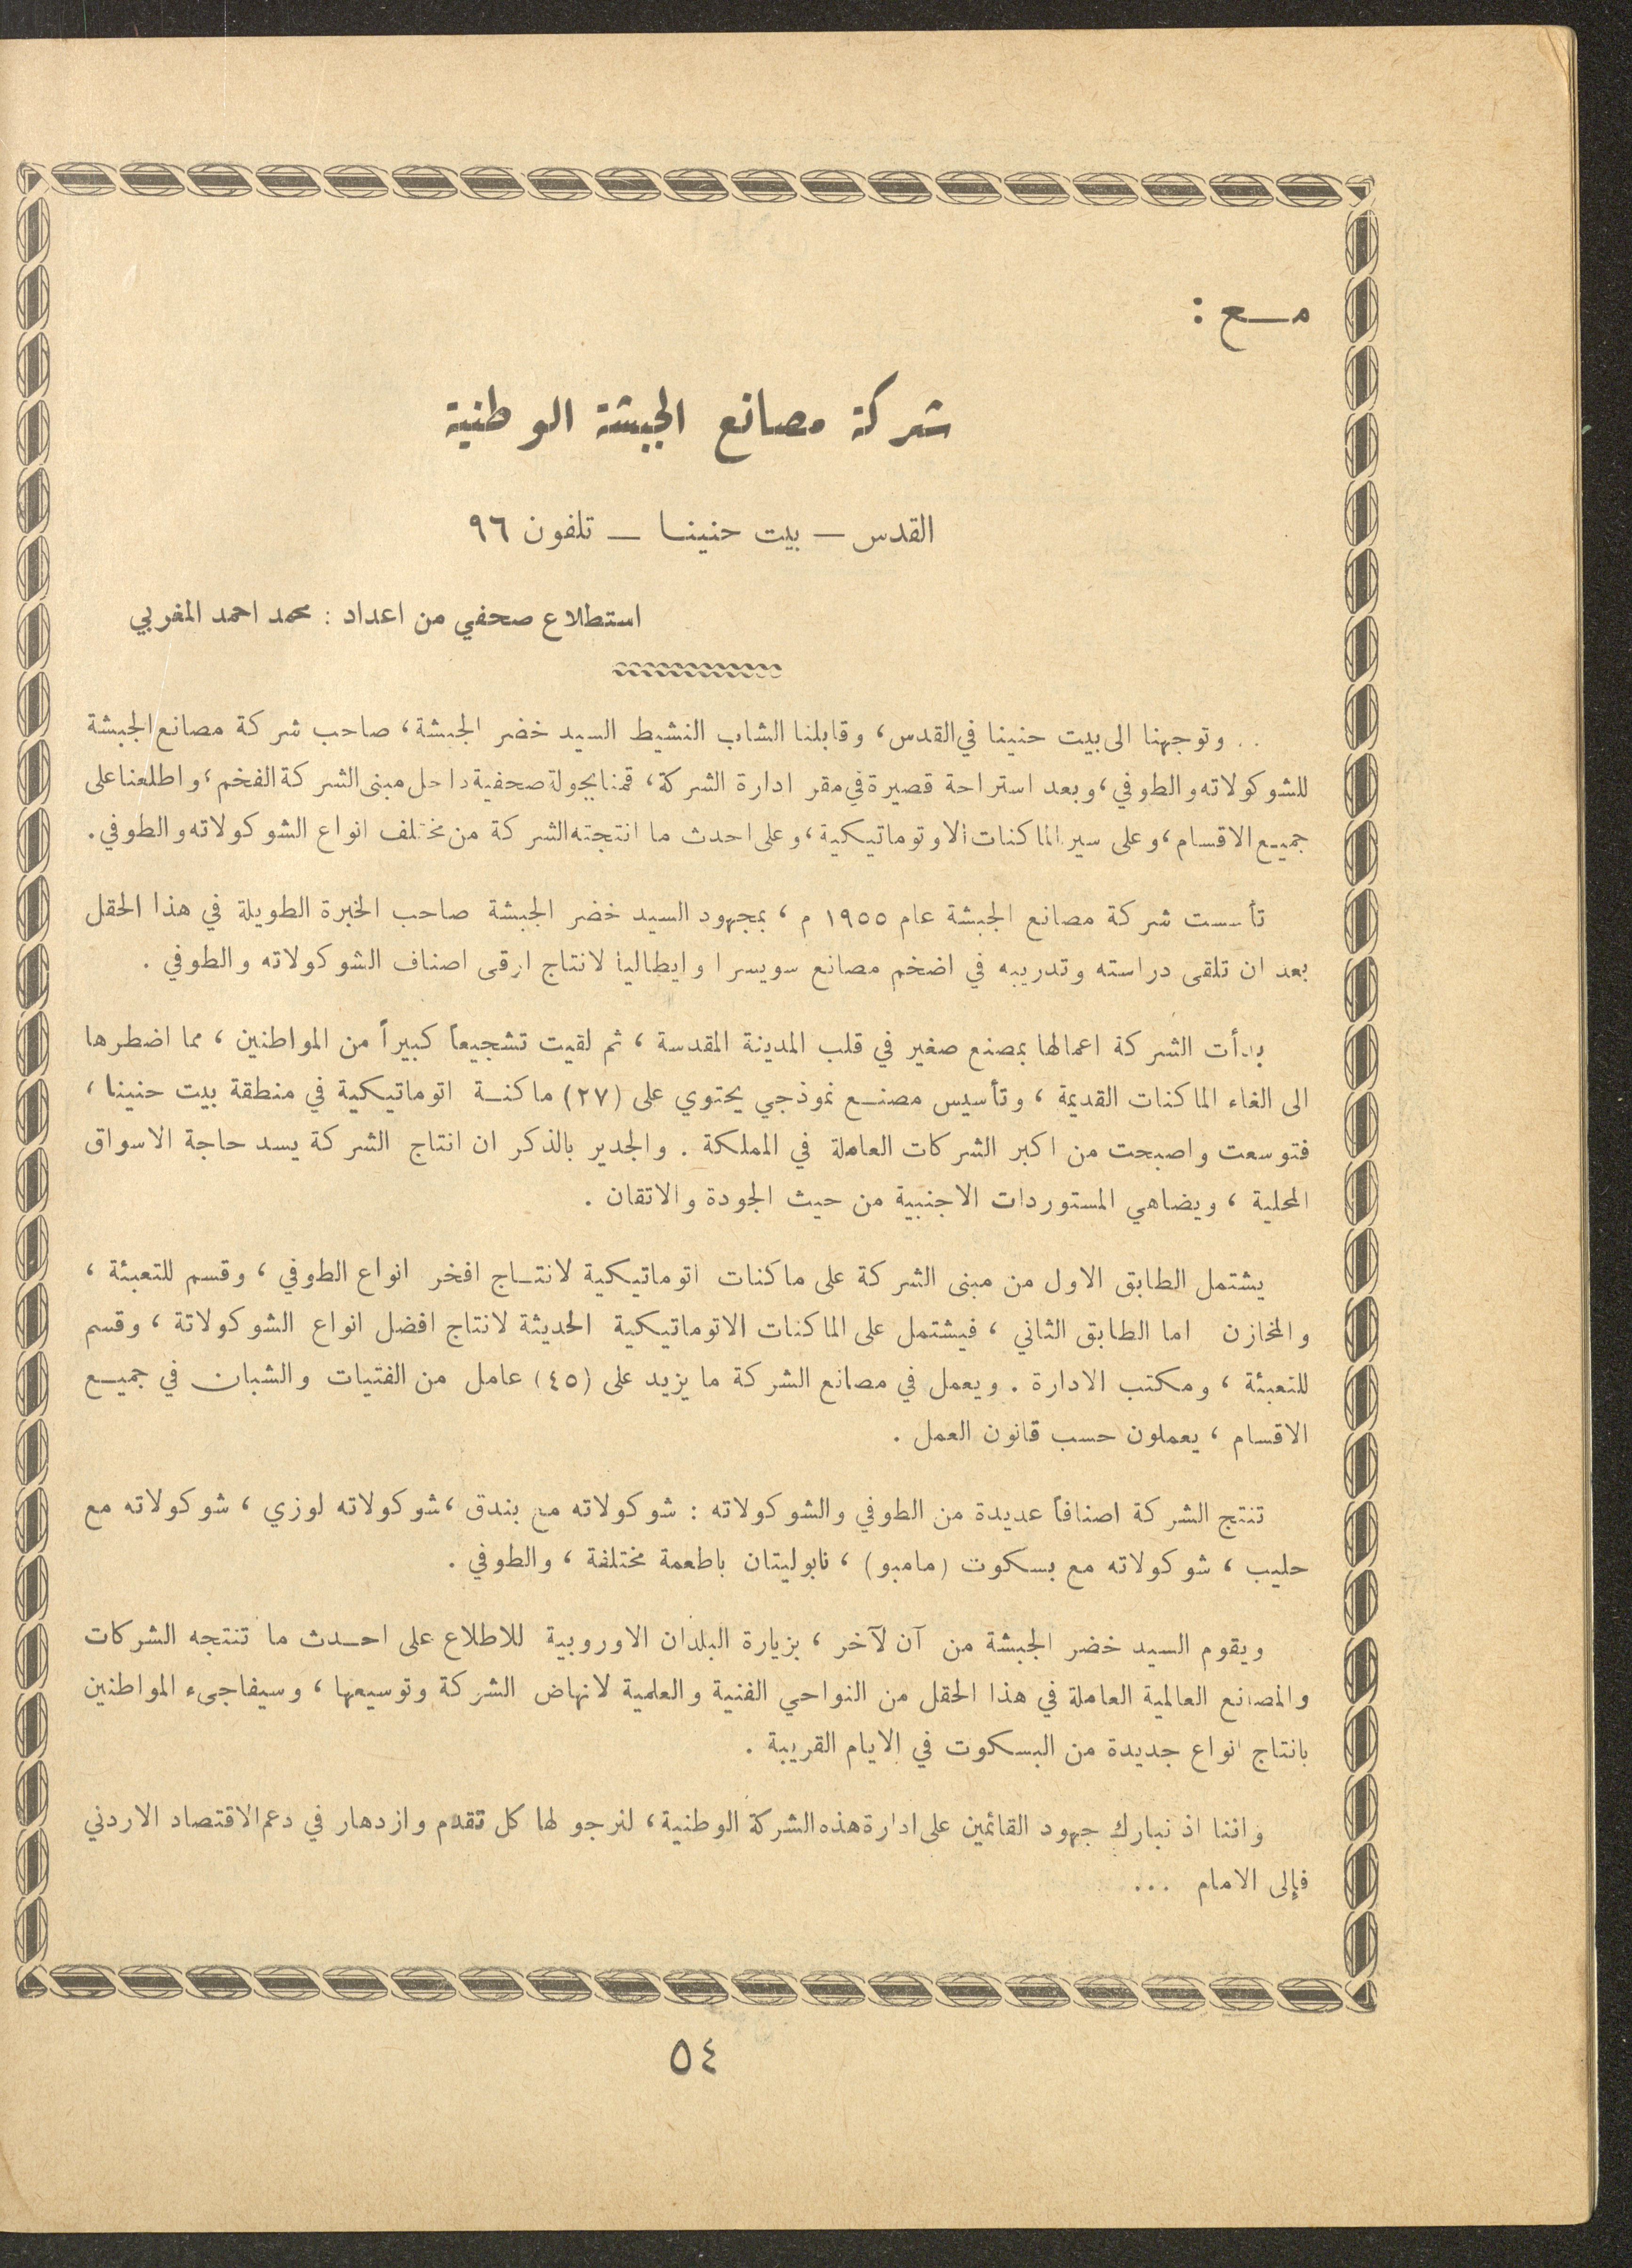 مـــع :
شركة مصانع الجبشة الوطنية
القدس – بيت حنينــا – تلفون ٩٦
استطلاع صحفي من اعداد : محمد احمد المغربي
.. وتوجهنا الى بيت حنينا في القدس، وقابلنا الشاب النشيط السيد خضر الجبشة، صاحب شركة مصانع الجبشة
للشوكولاته والطوفي، وبعد استراحة قصيرة في مقر ادارة الشركة، قمنا بجولة صحفية داخل مبنى الشركة الفخم، واطلعنا على
جميع الاقسام، وعلى سير الماكنات الاوتوماتيكية، وعلى احدث ما انتجته الشركة من مختلف انواع الشوكولاته والطوفي.
تأسست شركة مصانع الجبشة عام ١٩٥٥ م ، بمجهود السيد خضر الجبشة صاحب الخبرة الطويلة في هذا الحقل
بعد ان تلقى دراسته وتدريبه في اضخم مصانع سويسرا وايطاليا لانتاج ارقى اصناف الشوكولاته والطوفي .
بدأت الشركة اعمالها بمصنع صغير في قلب المدينة المقدسة ، ثم لقيت تشجيعاً كبيراً من المواطنين ، مما اضطرها
الى الغاء الماكنات القديمة ، وتأسيس مصنــع نموذجي يحتوي على (٢٧) ماكنــة اتوماتيكية في منطقة بيت حنينا ،
فتوسعت واصبحت من اكبر الشركات العاملة في المملكة . والجدير بالذكر ان انتاج الشركة يسد حاجة الاسواق
المحلية ، ويضاهي المستوردات الاجنبية من حيث الجودة والاتقان .
يشتمل الطابق الاول من مبنى الشركة على ماكنات اتوماتيكية لانتــاج افخر انواع الطوفي ، وقسم للتعبئة ،
والمخازن اما الطابق الثاني ، فيشتمل على الماكنات الاتوماتيكية الحديثة لانتاج افضل انواع الشوكولاتة ، وقسم
للتعبئة ، ومكتب الادارة . ويعمل في مصانع الشركة ما يزيد على (٤٥) عامل من الفتيات والشبان في جميــع
الاقسام ، يعملون حسب قانون العمل .
تنتج الشركة اصنافاً عديدة من الطوفي والشوكولاته : شوكولاته مع بندق ، شوكولاته لوزي ، شوكولاته مع
حليب ، شوكولاته مع بسكوت (مامبو) ، نابوليتان باطعمة مختلفة ، والطوفي .
ويقوم السيد خضر الجبشة من آن لآخر ، بزيارة البلدان الاوروبية للاطلاع على احــدث ما تنتجه الشركات
والمصانع العالمية العاملة في هذا الحقل من النواحي الفنية والعلمية لانهاض الشركة وتوسيعها ، وسيفاجىء المواطنين
بانتاج انواع جديدة من البسكوت في الايام القريبة .
واننا اذ نبارك جهود القائمين على ادارة هذه الشركة الوطنية، لنرجو لها كل تقدم وازدهار في دعم الاقتصاد الاردني
فإلى الامام ...
٥٤